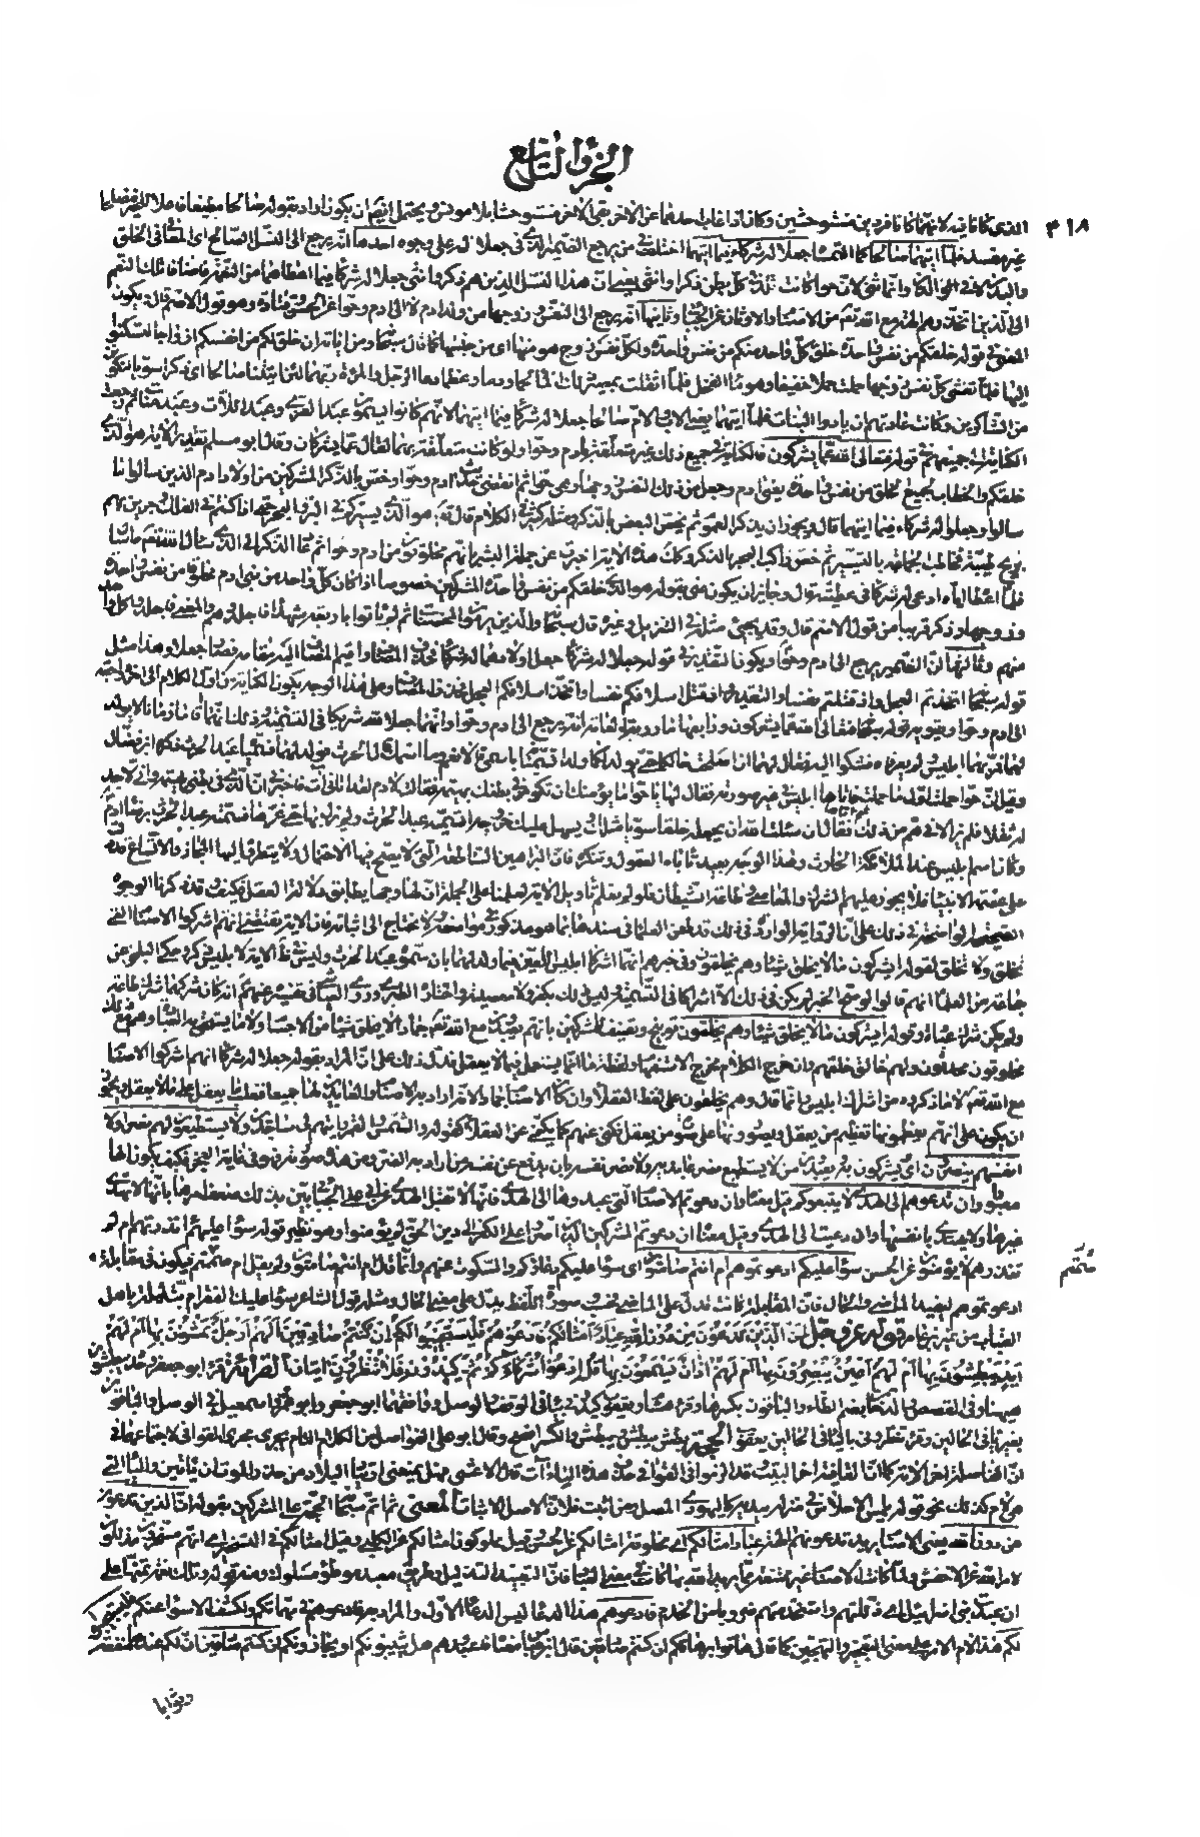 الجزؤ التاسع
٣١٨
الذي كانا فيه لانهما كانا فردين مستوحشين وكان اذا غاب احدهما عن الآخر بقي الآخر مستوحشا بلا مونس ويحتمل ايضا ان يكون اراد بقوله صالحا مطيعا فاعلا للخير مصلحا
غير مفسد فلما آتيهما صالحا كما التمسا جعلا له شركاء فيما آتيهما اختلف في من يرجع الضمير الذي في جعلا اليه على وجوه احدها انه يرجع الى النسل الصالح اي المعافى في الخلق
والبدن لا في الدين وانما ثنى لان حوا كانت تلد في كل بطن ذكرا وانثى يعني ان هذا النسل الذين هم ذكر وانثى جعلا له شركاء فيما اعطاهما من النعمة فاضافا تلك النعم
الى الذين اتخذوهم آلهة مع الله تعالى من الاصنام والاوثان عن الجبائي وثانيها انه يرجع الى النفس وزوجها من ولد ادم لا الى ادم وحوا عن الحسن وقتادة وهو قول الاصم قال ويكون
المعنى في قوله خلقكم من نفس واحدة خلق كل واحد منكم من نفس واحدة ولكل نفس زوج هو منها اي من جنسها كما قال سبحانه ومن آياته ان خلق لكم من انفسكم ازواجا لتسكنوا
اليها فلما تغشى كل نفس زوجها حملت حملا خفيفا وهو ماء الفحل فلما اثقلت بمصير ذلك الماء لحما ودما وعظما دعا الرجل والمرءة ربهما لئن آتيتنا صالحا اي ذكرا سويا لنكونن
من الشاكرين وكانت عادتهم ان يئدوا البنات فلما آتيهما يعني الاب والام صالحا جعلا له شركاء فيما آتيهما لانهم كانوا يسمون عبد العزى وعبد اللات وعبد مناة ثم رجعت
الكناية الى جميعهم في قوله فتعالى الله عما يشركون فالكناية في جميع ذلك غير متعلقة بادم وحوا ولو كانت متعلقة بهما لقال عما يشركان وقال ابو مسلم تقدير الآية هو الذي
خلقكم والخطاب لجميع الخلق من نفس واحدة يعني ادم وجعل من ذلك النفس زوجها وهي حوا ثم انقضى حديث ادم وحوا وخص بالذكر المشركين من اولاد ادم الذين سالوا ما
سالوا وجعلوا له شركاء فيما آتيهما قال ويجوز ان يذكر العموم ثم يخص البعض بالذكر ومثله كثير في الكلام قال تعالى هو الذي يسيركم في البر والبحر حتى اذا كنتم في الفلك وجرين بهم
بريح طيبة فخاطب الجماعة بالتسيير ثم خص راكب البحر بالذكر وكذلك هذه الآية اخبرت عن جملة البشر بانهم مخلوقون من ادم وحوا ثم عاد الذكر الى الذي سال الله تعالى ما سال
فلما اعطاه اياه ادعى له شركاء في عطيته قال وجائز ان يكون عنى بقوله هو الذي خلقكم من نفس واحدة المشركين خصوصا اذا كان كل واحد من بني ادم مخلوقا من نفس واحدة
وزوجها وذكر قريبا من قول الاصم قال وقد يجيء مثله في التنزيل وغيره قال سبحانه والذين يرمون المحصنات ثم لم ياتوا باربعة شهداء فاجلدوهم والمعنى فاجلدوا كل واحد
منهم وثالثها ان الضمير يرجع الى ادم وحوا ويكون التقدير في قوله جعلا له شركاء جعل اولادهما له شركاء فحذف المضاف واقيم المضاف اليه مقامه فصار جعلا وهذا مثل
قوله سبحانه اتخذتم العجل واذ قتلتم نفسا والتقدير واذ قتل اسلافكم نفسا واتخذ اسلافكم العجل فحذف المضاف وعلى هذا الوجه يكون الكناية من اول الكلام الى آخره راجعة
الى ادم وحوا ويقويه قوله سبحانه فتعالى الله عما يشركون ورابعها ما روته العامة انه يرجع الى ادم وحوا وانهما جعلا لله شريكا في التسمية وذلك انهما اقاما زمانا لا يولد
لهما فمر بهما ابليس ولم يعرفاه فشكوا اليه فقال لهما ان اصلحت حالكما حتى يولد لكما ولد اتسميانه باسمي قالا نعم وما اسمك قال الحرث فولد لهما فسمياه عبد الحرث ذكره ابن فضال
وقيل ان حوا حملت اول ما حملت فاتاها ابليس في غير صورته فقال لها يا حوا ما يؤمنك ان تكون في بطنك بهيمة فقالت لادم لقد اتاني آت فاخبرني ان الذي في بطني بهيمة واني لاجد
له ثقلا فلم يزالا في هم من ذلك ثم اتاها فقال ان سئلت الله ان يجعله خلقا سويا مثلك ويسهل عليك خروجه اتسميه عبد الحرث ولم يزل بها حتى غرها فسمته عبد الحرث برضاء ادم
وكان اسم ابليس عند الملائكة الحارث وهذا الوجه بعيد تاباه العقول وتنكره فان البراهين الساطعة التي لا يصح فيها الاحتمال ولا يتطرق اليها المجاز والاتساع قد دلت
على عصمة الانبياء فلا يجوز عليهم الشرك والمعاصي وطاعة الشيطان فلو لم نعلم تاويل الآية لعلمنا على الجملة ان لها وجها يطابق دلالة العقل فكيف وقد ذكرنا الوجوه
الصحيحة الواضحة في ذلك على ان الرواية الواردة في ذلك قد طعن العلماء في سندها بما هو مذكور في مواضعه ولا نحتاج الى اثباته فان الآية تقتضي انهم اشركوا الاصنام التي
تخلق ولا تخلق لقوله ايشركون ما لا يخلق شيئا وهم يخلقون وفي خبرهم انهما اشركا ابليس اللعين فيما ولد لهما بان سموه عبد الحرث وليس في ظاهر الآية لابليس ذكر وحكى البلخي عن
جماعة من العلماء انهم قالوا لو صح الخبر لم يكن في ذلك الا اشراكا في التسمية وليس ذلك بكفر ولا معصية واختاره الطبري وروى العياشي في تفسيره عنهم انه كان شركهما شرك طاعة
ولم يكن شرك عبادة وقوله ايشركون ما لا يخلق شيئا وهم يخلقون توبيخ وتعنيف للمشركين بانهم يعبدون مع الله تعالى جمادا لا يخلق شيئا من الاجسام ولا ما يستحق به العبادة وهم مع ذلك
مخلوقون محدثون ولهم خالق خلقهم وان خرج الكلام مخرج الاستفهام ولفظة ما انما يستعمل فيما لا يعقل فدل ذلك على ان المراد بقوله جعلا له شركاء انهم اشركوا الاصنام
مع الله تعالى لا ما ذكروه من اشراك ابليس وانما قال وهم يخلقون على لفظ العقلاء وان كان الاصنام جمادا لانه اراد به الاصنام والعابدين لها جميعا فغلب ما يعقل على ما لا يعقل ويجوز
ان يكون على انهم يعظمونها تعظيم من يعقل ويصورونها على صورة من يعقل فكنى عنهم كما يكنى عن العقلاء كقوله والشمس والقمر رايتهم لي ساجدين ولا يستطيعون لهم نصرا ولا
انفسهم ينصرون اي يشركون به ويعبدون من لا يستطيع نصر عابديه ولا نصر نفسه بان يدفع عن نفسه من اراد به الضر ومن هذه صورته فهو في غاية العجز فكيف يكون الها
معبودا وان تدعوهم الى الهدى لا يتبعوكم قيل معناه وان دعوتم الاصنام التي عبدوها الى الهدى فانها لا تقبل الهدى عن ابي علي الجبائي بين بذلك ضعف امرها بانها لا تهدي
غيرها ولا تهتدي بانفسها وان دعيت الى الهدى وقيل معناه ان دعوتم المشركين الذين اصروا على الكفر الى دين الحق لم يؤمنوا وهو نظير قوله سواء عليهم ءانذرتهم ام لم
تنذرهم لا يؤمنون عن الحسن سواء عليكم ادعوتموهم ام انتم صامتون اي سواء عليكم دعاؤكم والسكوت عنهم وانما قال ام انتم صامتون ولم يقل ام صمتم فيكون في مقابلة
صمتم
ادعوتموهم ليفيد الماضي والحال فان المقابلة كانت تدل على الماضي فحسب وصورة اللفظ يدل على معنى الحال ومثله قول الشاعر سواء عليك الفقر ام بت ليلة باهل
القباب من نمير بن عامر قوله عز وجل ان الذين تدعون من دون الله عباد امثالكم فادعوهم فليستجيبوا لكم ان كنتم صادقين الهم ارجل يمشون بها ام لهم
ايد يبطشون بها ام لهم اعين يبصرون بها ام لهم اذان يسمعون بها قل ادعوا شركاءكم ثم كيدون فلا تنظرون ايتان القراءة قرء ابو جعفر وحده يبطشون
هيهنا وفي القصص والدخان بضم الطاء والباقون بكسرها وقرء هشام ويعقوب كيدوني بياء في الوقف والوصل ووافقهما ابو جعفر وابو عمرو واسمعيل في الوصل والباقون
بغير ياء في الحالين وقرء تنظروني بالياء في الحالين يعقوب الحجة بطش يبطش ويبطش والكسر افصح وقال ابو علي الفواصل من الكلام التام تجري مجرى القوافي لاجتماعهما في
ان الفاصلة آخر الآية كما ان القافية آخر البيت وقد الزموا في القوافي حذف هذه الياءات قال الاعشى فهل يمنعني ارتيادي البلاد من حذر الموت ان ياتين والياء التي
هي لام كذلك نحو قوله يلمس الاحلاس في منزله بيديه كاليهودي المصل ومن اثبت فلان الاصل الاثبات المعنى ثم اتم سبحانه الحجة على المشركين بقوله ان الذين تدعون
من دون الله يعني الاصنام يريد تدعونهم آلهة عباد امثالكم اي مخلوقة امثالكم عن الحسن وقيل مملوكون امثالكم عن الكلبي وقيل امثالكم في التسخير اي انهم مسخرون مذللون
لامر الله عن الاخفش ولما كانت الاصنام غير ممتنعة مما يريد الله بها كانت في معنى العباد فان التعبيد التذليل وطريق معبد موطوء مسلوك ومنه قوله وتلك نعمة تمنها علي
ان عبدت بني اسرائيل اي ذللتهم واستخدمتهم ضروبا من الخدم فادعوهم هذا الدعاء ليس الدعاء الاول والمراد به فادعوهم في مهماتكم ولكشف الاسواء عنكم فليستجيبوا
لكم هذه لام الامر على معنى التعجيز والتهجين كما قال هاتوا برهانكم ان كنتم صادقين قال ابن عباس معناه فاعبدوهم هل يثيبونكم او يجازونكم ان كنتم صادقين ان لكم عندها منفعة
وثوابا